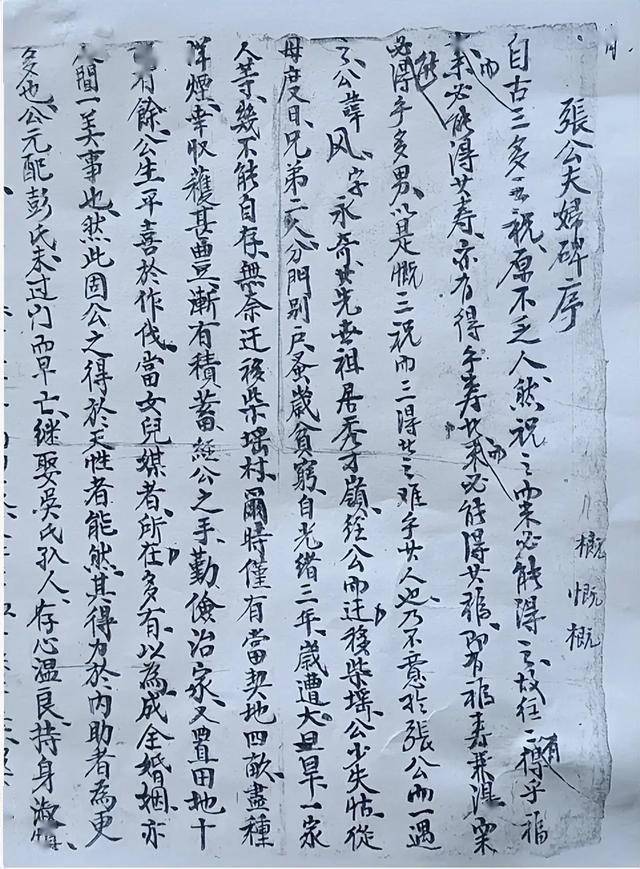 張公夫婦碑序
自古三多之祝原不乏人然祝之未必能得之故往々有得乎福
而未必能得其寿亦有得乎寿者而未必能得其福即有福寿兼
必得乎多男以是慨三祝而三得者之难乎其人也乃不意於張公而一遇
之公諱风字永奇其先世祖居秀才嶺经公而迁移柴𡋾公少失怙從
母度日兄弟二人分門別戶蚤歲貧窮自光緒三年歲遭大旱一家
人等幾不能自存無奈迁移柴𡋾村爾時僅有當契地四畝盡種
洋煙幸収蘿甚豊漸有積蓄経公之手勤儉治家又置田地十
有餘公生平喜於作伐當女兒媒者所在多有以為成全婚姻亦
人間一美事也然此固公之得於天性者能然其得力於內助者為更
多也公元配彭氏未过门而早亡继娶吳氏孔人存心温良持身淑
概 慨 概